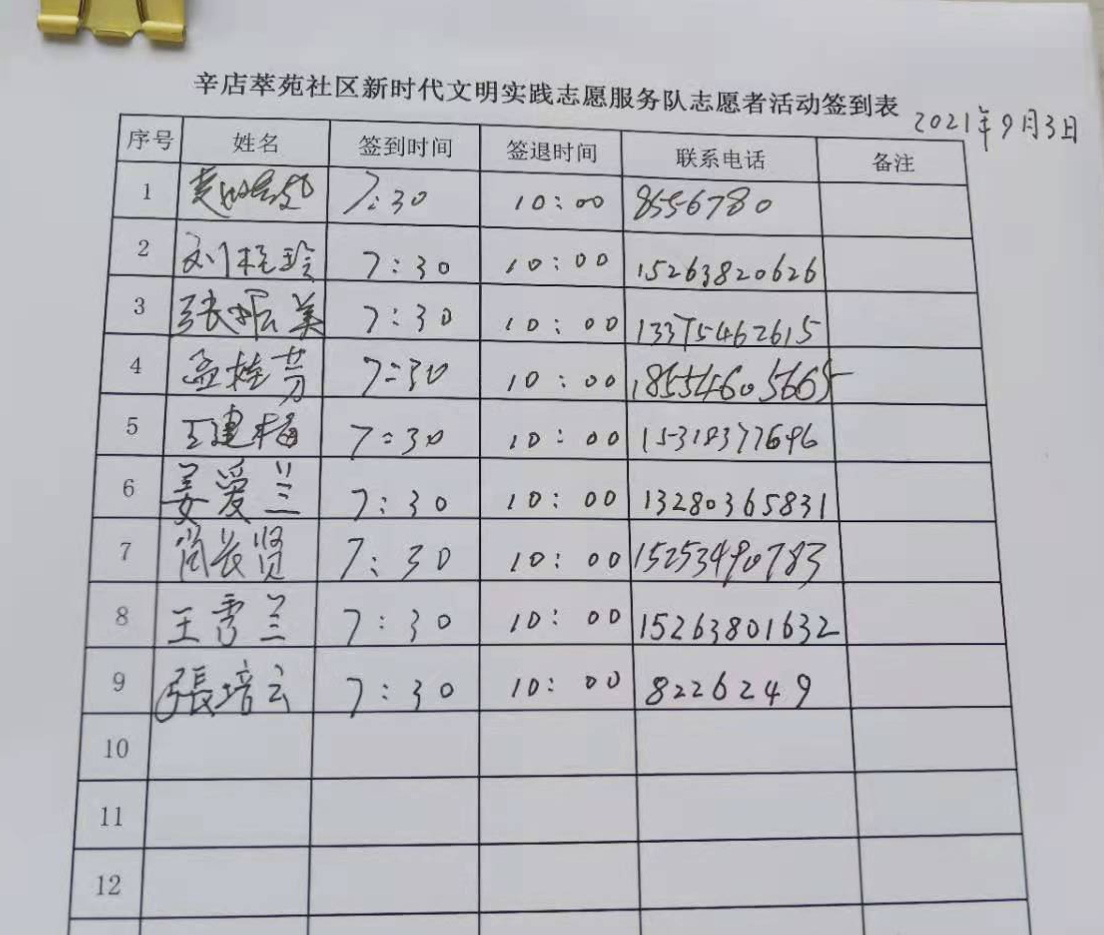 辛店萃苑社区新时代文明实践志愿服务队志愿者活动签到表
2021年9月3日
序号 姓名 签到时间 签退时间 联系电话 备注
1 7:30 10:00 8556780
2 刘桂玲 7:30 10:00 15263820626
3 张振美 7:30 10:00 13375462615
4 孟桂芳 7:30 10:00 18554605665
5 王建梅 7:30 10:00 15318377696
6 姜爱兰 7:30 10:00 13280365831
7 尚长贤 7:30 10:00 15253490783
8 王秀兰 7:30 10:00 15263801632
9 張培云 7:30 10:00 8226249
10
11
12